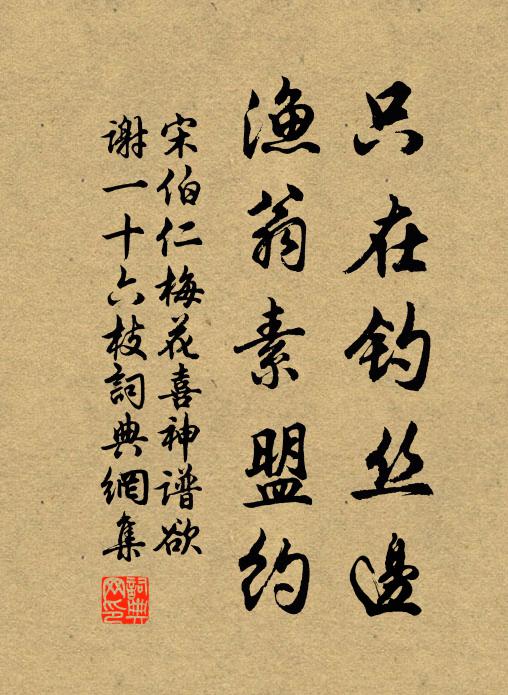 只在钓丝邊
漁翁素盟约
宋伯仁梅花喜神谱欲
谢一十六枝詞典網集
詞典网印